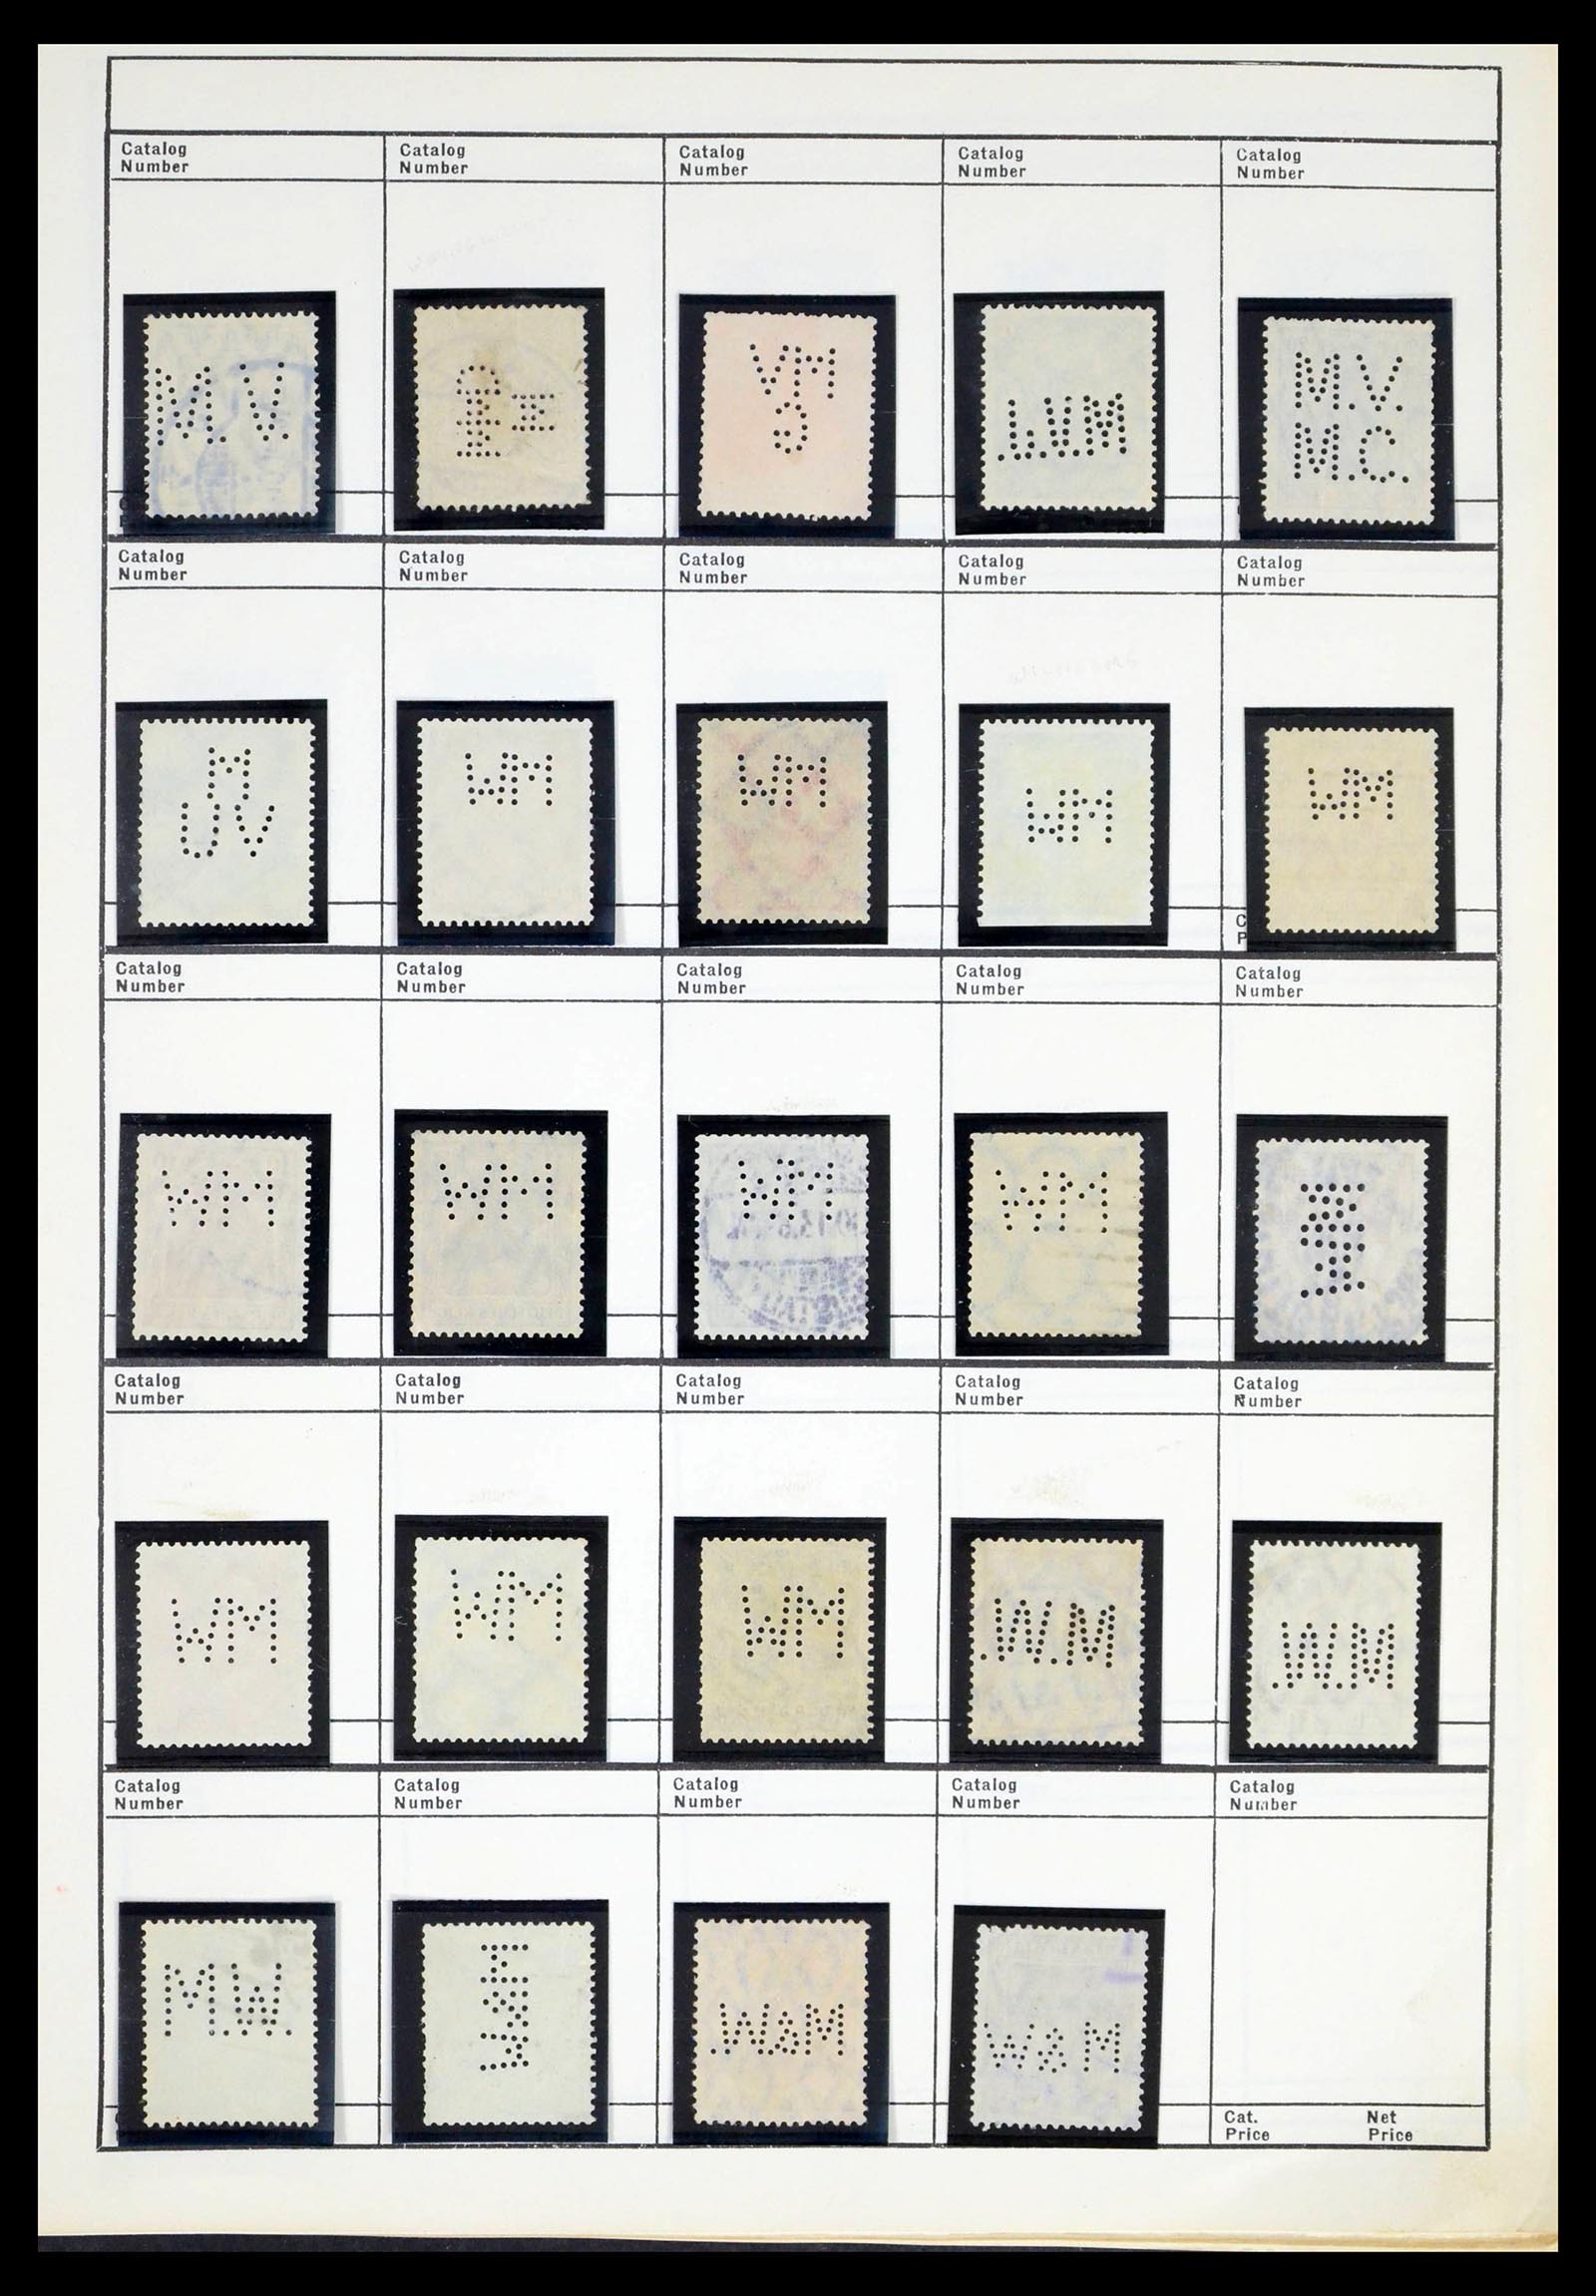 Catalog Number
Catalog Number
Catalog Number
Catalog Number
Catalog Number
M.V.
VM
C
M.V.
M.C.
Catalog Number
Catalog Number
Catalog Number
Catalog Number
Catalog Number
M
UV
WM
WM
WM
WM
Catalog Number
Catalog Number
Catalog Number
Catalog Number
Catalog Number
WM
WM
WM
WM
Catalog Number
Catalog Number
Catalog Number
Catalog Number
Catalog Number
WM
WM
WM
.W.M
.W.M
Catalog Number
Catalog Number
Catalog Number
Catalog Number
Catalog Number
M.W.
.W&M
W&M
Cat. Price
Net Price